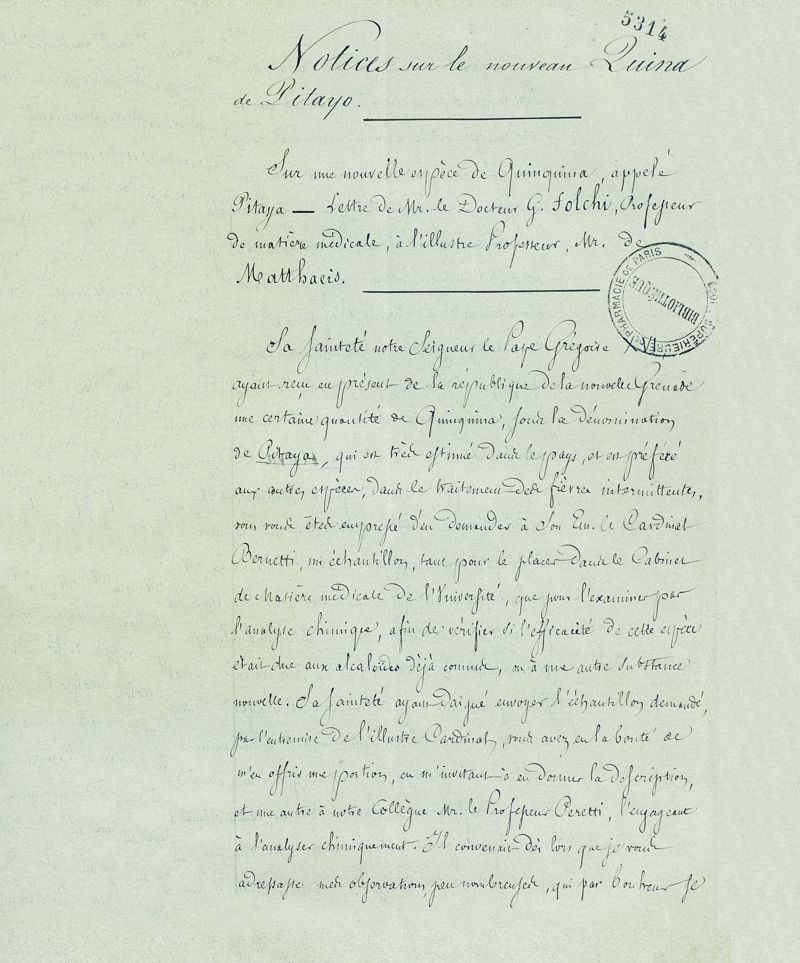 5314
Notices sur le nouveau Quina
de Pitayo.
Sur une nouvelle espèce de Quinquina, appelé
Pitaya — Lettre de Mr. le Docteur G. Folchi, Professeur
de matière médicale, à l'illustre Professeur, Mr. de
Matthaeis.
PHARMACIE DE PARIS
BIBLIOTHÈQUE
SUPÉRIEURE
Sa Sainteté notre Seigneur le Pape Grégoire XVI
ayant reçu en présent de la république de la nouvelle Grenade
une certaine quantité de Quinquina, sous la dénomination
de Pitaya, qui est très estimé dans le pays, et est préféré
aux autres espèces, dans le traitement des fièvres intermittentes,
vous vous êtes empressé d'en demander à Son Em. le Cardinal
Bernetti, un échantillon, tant pour le placer dans le Cabinet
de Matière médicale de l'Université, que pour l'examiner par
l'analyse chimique, afin de vérifier si l'efficacité de cette espèce
était due aux alcaloïdes déjà connus, ou à une autre substance
nouvelle. Sa Sainteté ayant daigné envoyer l'échantillon demandé,
par l'entremise de l'illustre Cardinal, vous avez eu la bonté de
m'en offrir une portion, en m'invitant à en donner la description,
et une autre à notre Collègue Mr. le Professeur Peretti, l'engageant
à l'analyser chimiquement. Il convenait dès lors que je vous
adressasse mes observations peu nombreuses, qui par bonheur se